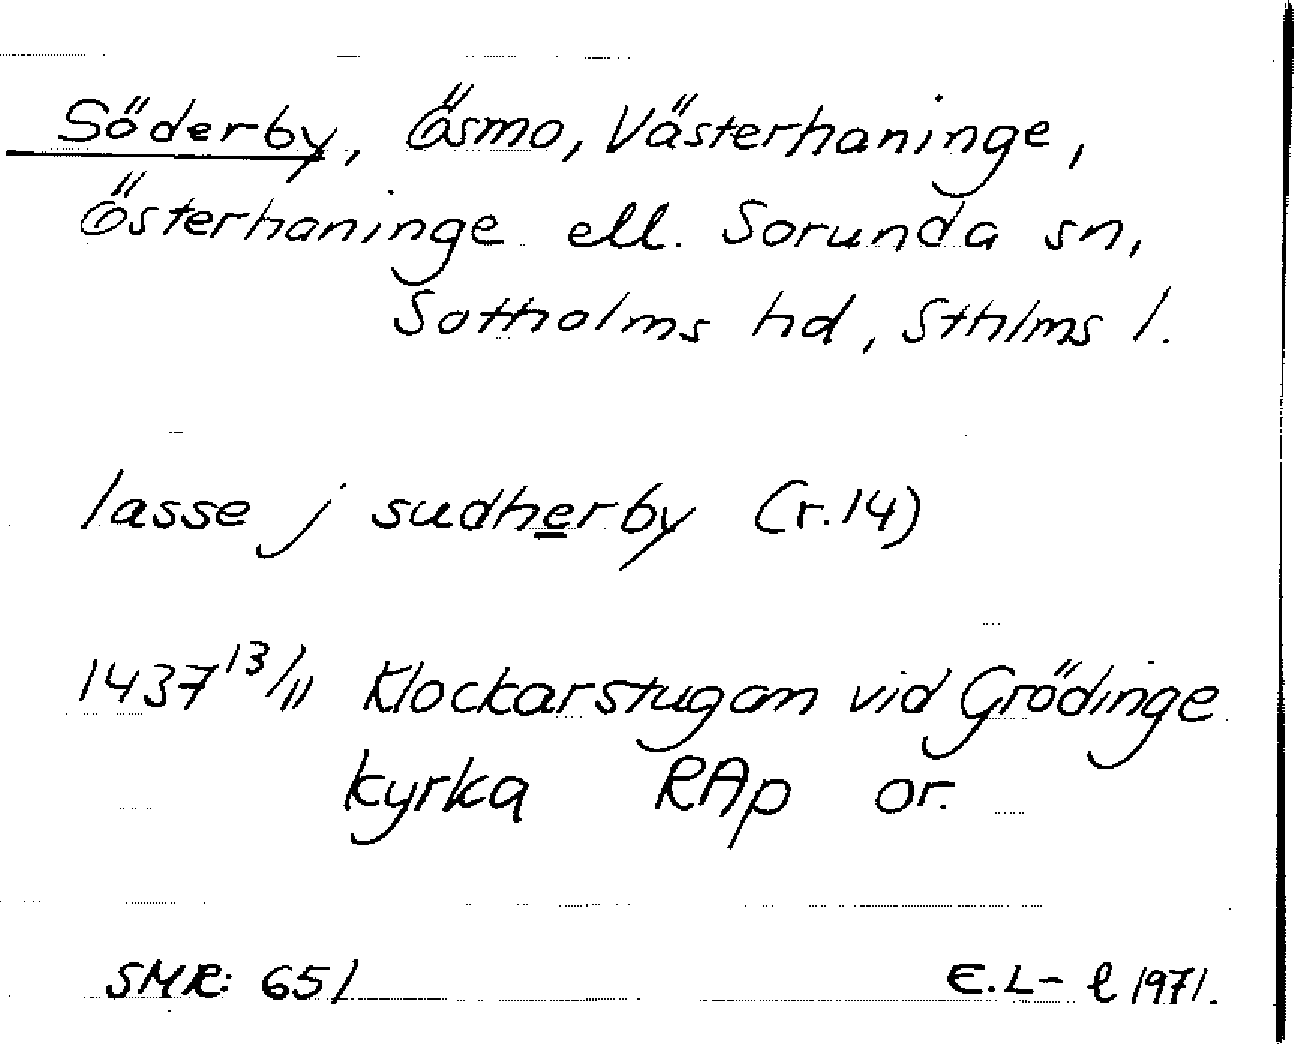 Söderby, Ösmo, Västerhaninge,
Österhaninge ell. Sorunda sn,
Sotholms hd, Sthlms l.
lasse j sudherby (r.14)
1437 13/11 Klockarstugan vid Grödinge
kyrka RAp or.
SMR: 651 E.L-l 1971.